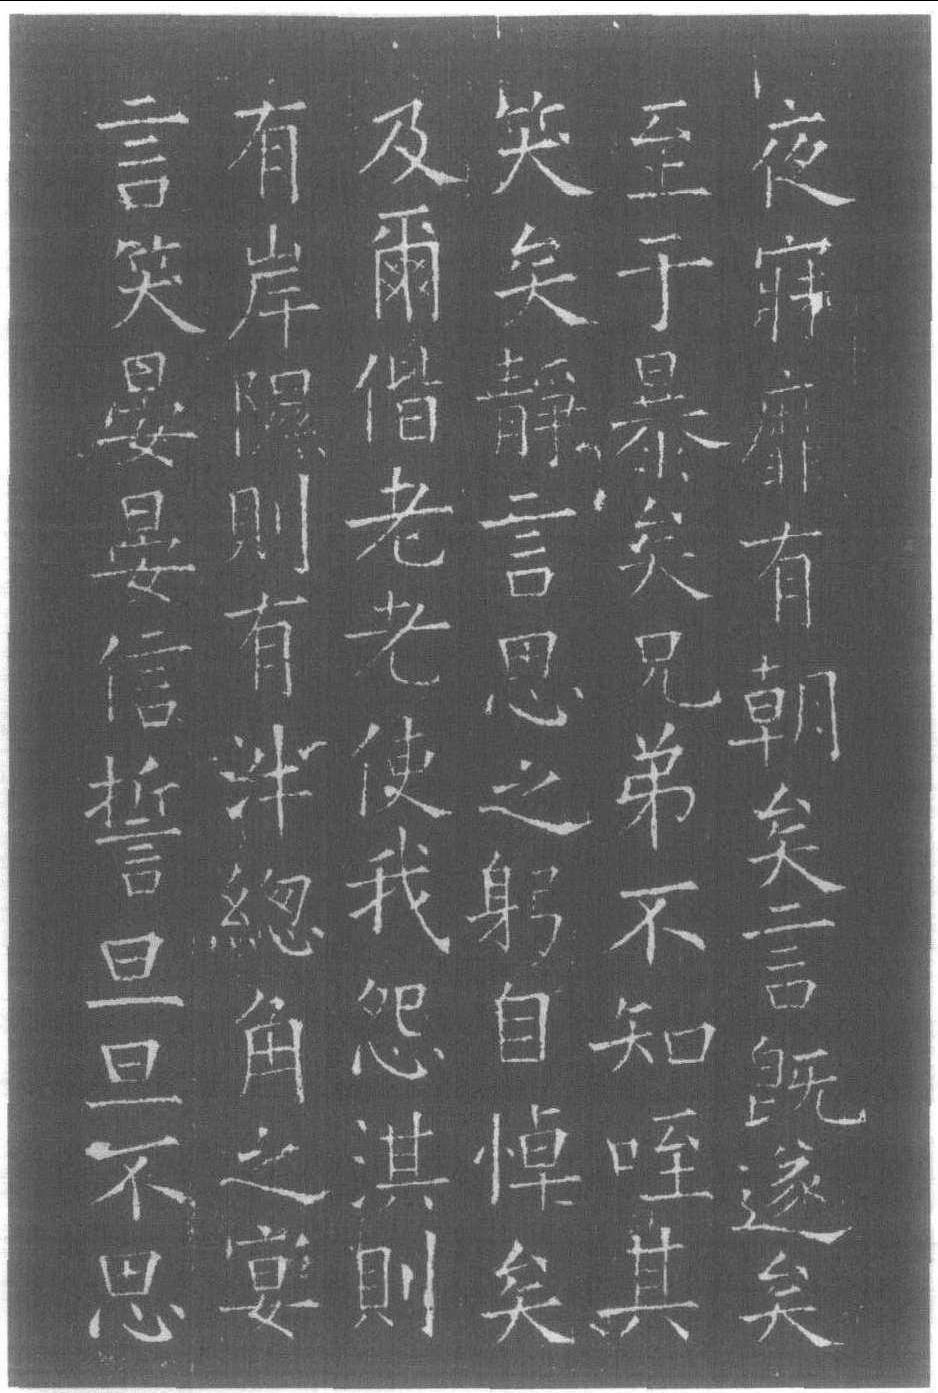 夜寐靡有朝矣言既遂矣
至于暴矣兄弟不知咥其
笑矣静言思之躬自悼矣
及爾偕老老使我怨淇則
有岸隰則有泮總角之宴
言笑晏晏信誓旦旦不思